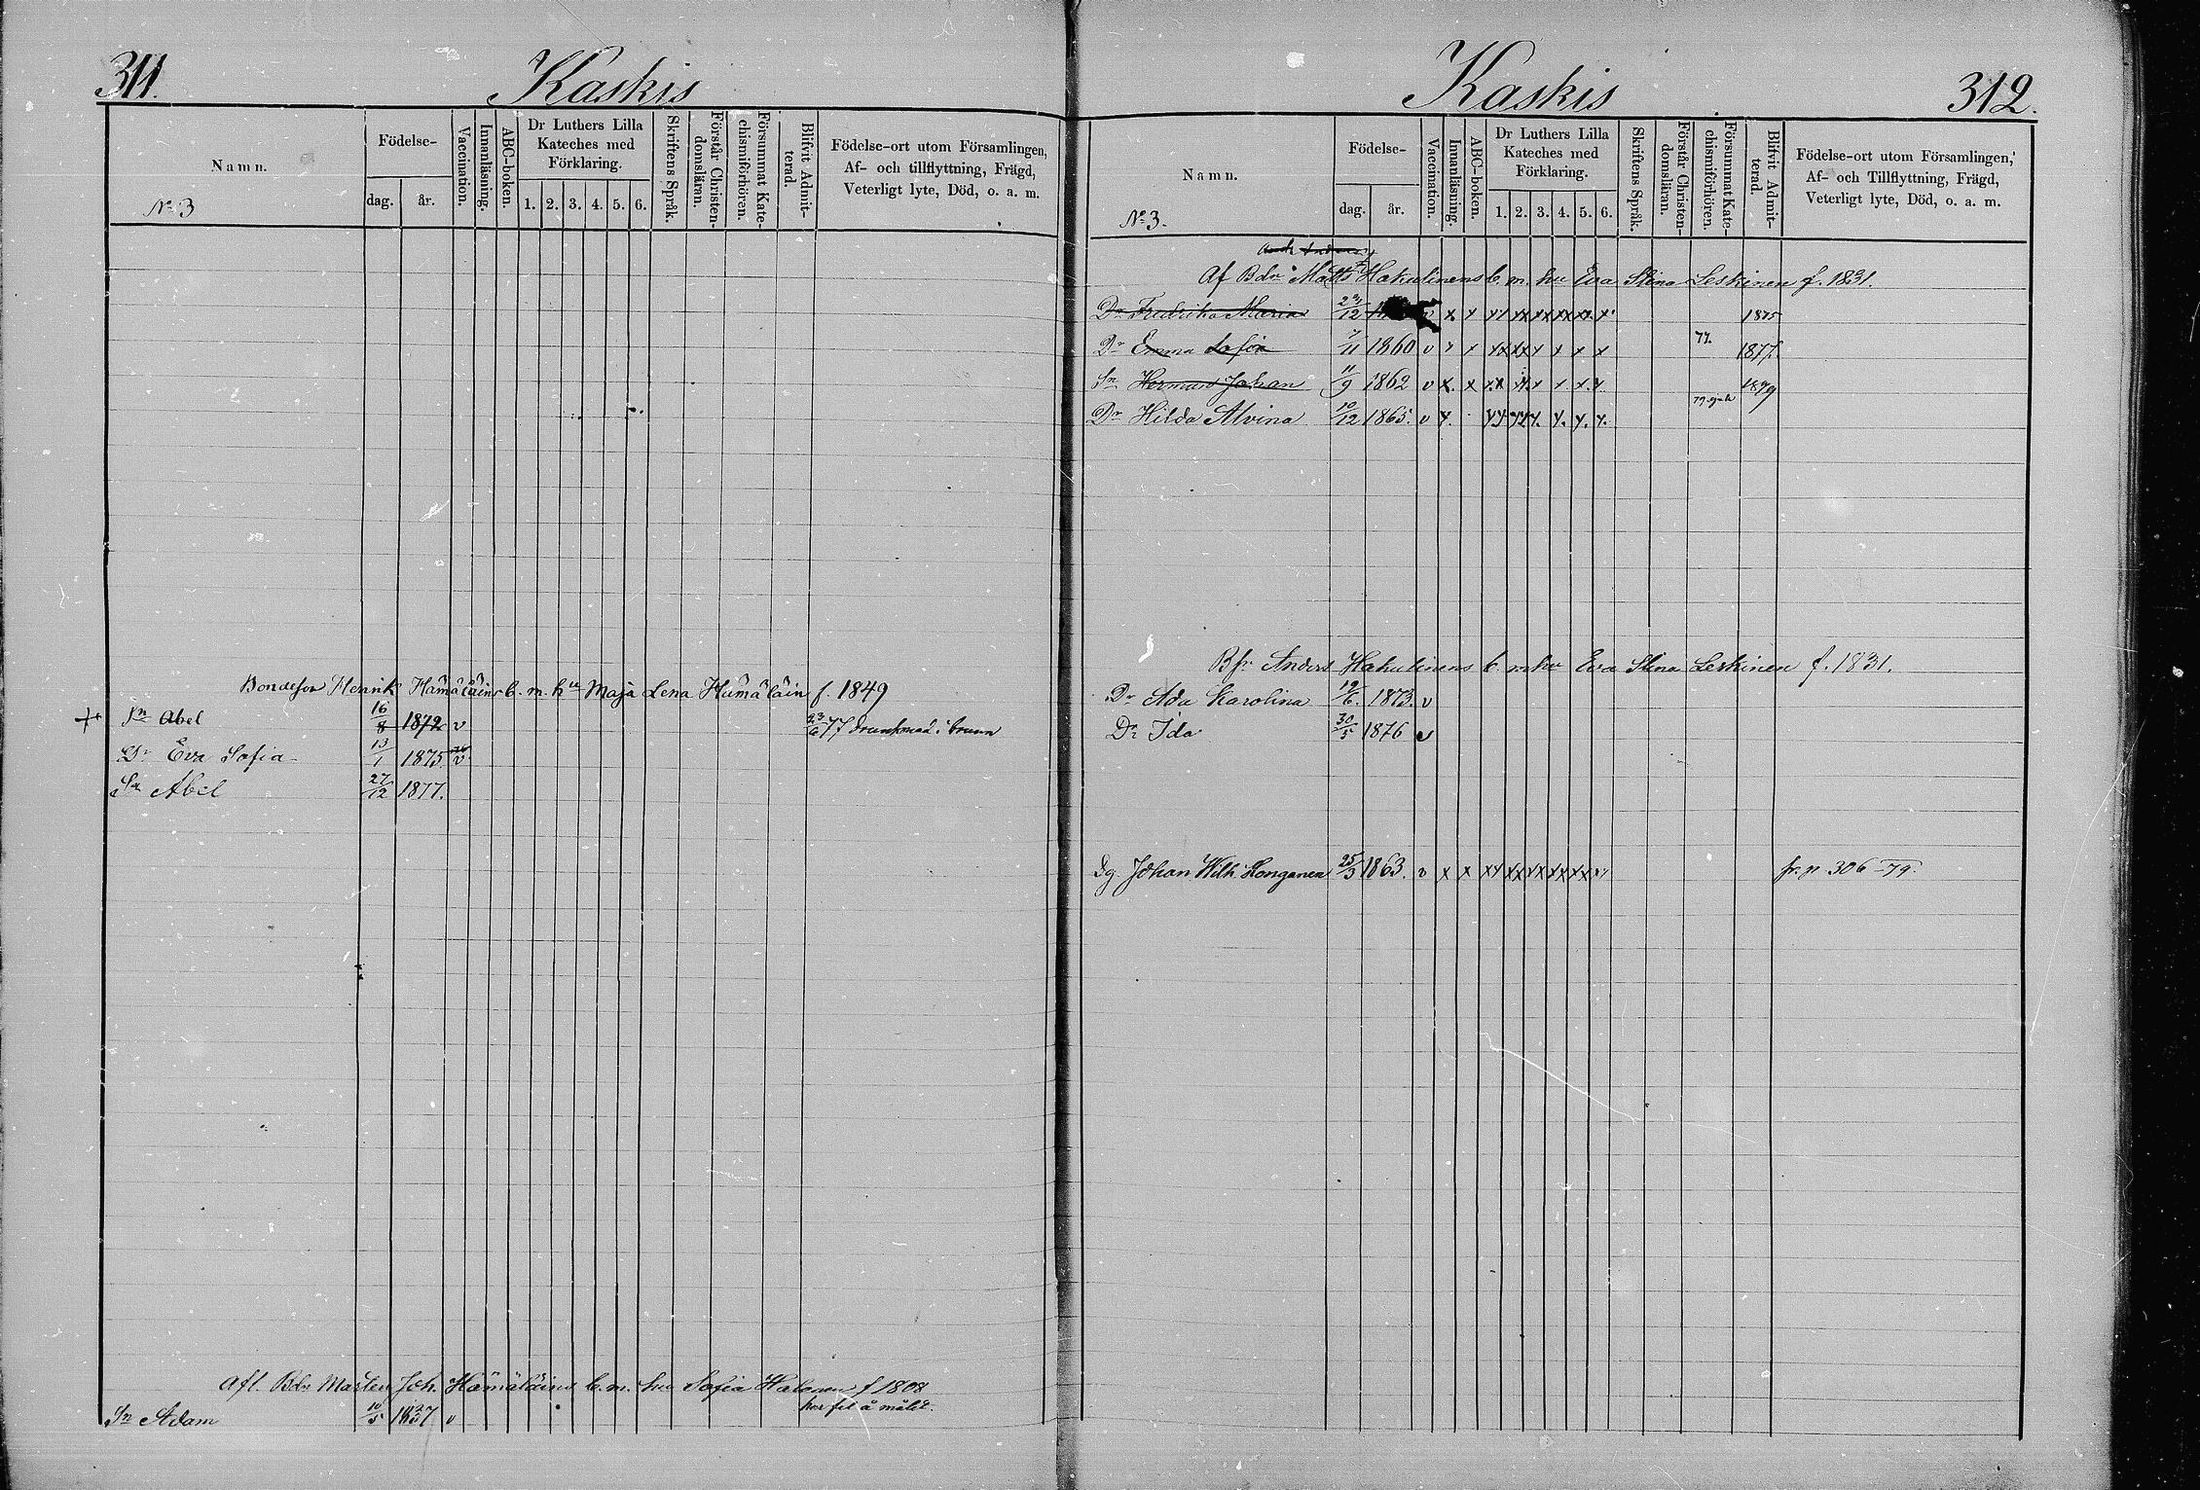 311.
Kaskis
Namn.
No 3
Födelse-
dag.
år.
Vaccination.
Innanläsning.
ABC-boken.
Dr Luthers Lilla
Kateches med
Förklaring.
1. 2. 3. 4. 5. 6.
Skriftens Språk.
Förstår Christen-
domsläran.
Försummat Kate-
chismiförhören.
Blifvit Admit-
terad.
Födelse-ort utom Församlingen,
Af- och tillflyttning, Frägd,
Veterligt lyte, Död, o. a. m.
Bondeson Henrik Hämäläins b. m. hu Maja Lena Hämäläin f. 1849
Sn Abel 16/8 1872 v 23/6 77 drunknad i brunn
Dr Eva Sofia 13/1 1875 v
Sn Abel 27/12 1877.
Afl. Bdn Marten Joh. Hämäläins b. m. hu Sofia Halonen f 1808
Sn Adam 10/5 1837 v har fel å målet.
Kaskis
312.
Namn.
No 3.
Födelse-
dag.
år.
Vaccination.
Innanläsning.
ABC-boken.
Dr Luthers Lilla
Kateches med
Förklaring.
1. 2. 3. 4. 5. 6.
Skriftens Språk.
Förstår Christen-
domsläran.
Försummat Kate-
chismiförhören.
Blifvit Admit-
terad.
Födelse-ort utom Församlingen,
Af- och Tillflyttning, Frägd,
Veterligt lyte, Död, o. a. m.
Af Bdn Matts Hakulinens b. m. hu Eva Stina Leskinen f. 1831.
Dr Fredrika Maria 12 v x x xx xx xx xx xx x 1875
Dr Emma Sofia 7/11 1860 v x x xx xx x x x x 77. 1877.
Sn Herman Johan 11/9 1862 v x. x x.x x.x x x. x. 1879
Dr Hilda Alvina 10/12 1865. v x. xx xx x. x. x. x.
Bfr Anders Hakulinens b. m hu Eva Stina Leskinen f. 1831.
Dr Ada Karolina 19/6. 1873. v
Dr Ida 30/5 1876 v
Dg Johan Wilh. Honganen 25/3 1863. v x x xx xx xx xx xx x fr. p 306 -79.